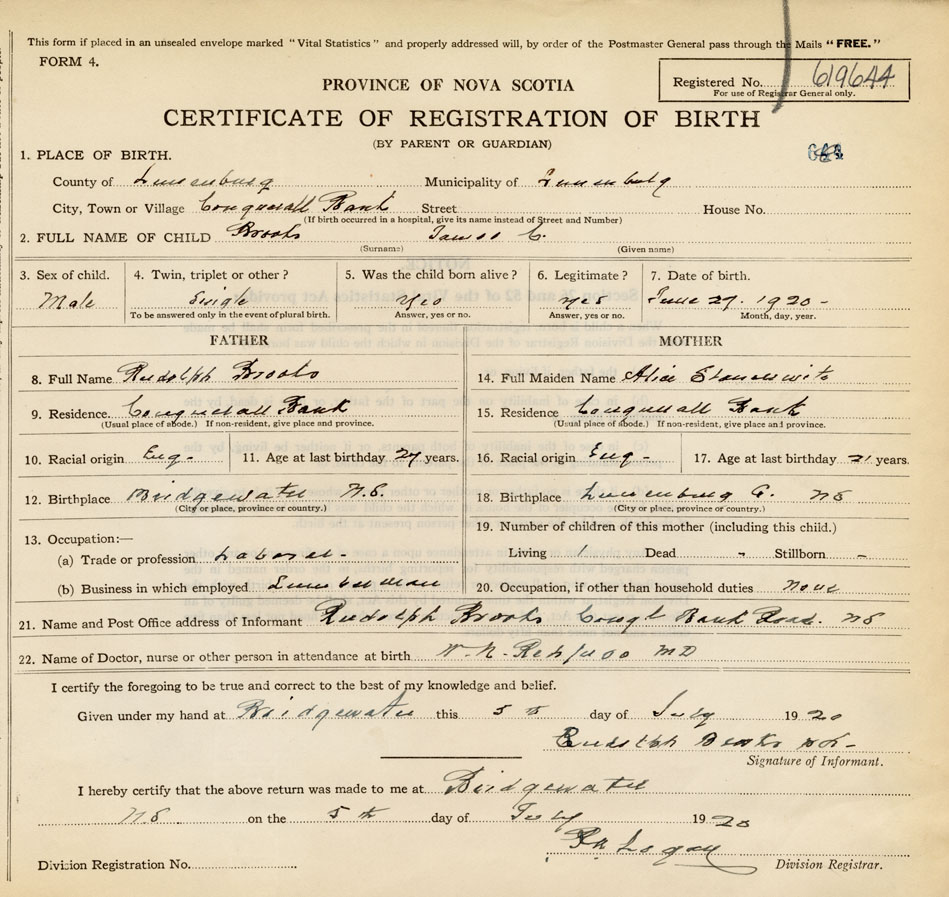 This form if placed in an unsealed envelope marked "Vital Statistics" and properly addressed will, by order of the Postmaster General pass through the Mails "FREE."
FORM 4.
Registered No. 619644
For use of Registrar General only.
PROVINCE OF NOVA SCOTIA
CERTIFICATE OF REGISTRATION OF BIRTH
(BY PARENT OR GUARDIAN)
1. PLACE OF BIRTH.
County of Lunenburg Municipality of Lunenburg
City, Town or Village Conquerall Bank Street House No.
(If birth occurred in a hospital, give its name instead of Street and Number)
2. FULL NAME OF CHILD Brooks James C.
(Surname) (Given name)
3. Sex of child. 4. Twin, triplet or other? 5. Was the child born alive? 6. Legitimate? 7. Date of birth.
Male Single Yes Yes June 27. 1920-
To be answered only in the event of plural birth. Answer, yes or no. Answer, yes or no. Month, day, year.
FATHER
8. Full Name Rudolph Brooks
9. Residence. Conquerall Bank
(Usual place of abode.) If non-resident, give place and province.
10. Racial origin Eng- 11. Age at last birthday 27 years.
12. Birthplace Bridgewater N.S.
(City or place, province or country.)
13. Occupation:—
(a) Trade or profession Laborer-
(b) Business in which employed Lumberman
MOTHER
14. Full Maiden Name Alice
15. Residence Conquerall Bank
(Usual place of abode.) If non-resident, give place and province.
16. Racial origin Eng- 17. Age at last birthday 21 years.
18. Birthplace Lunenburg Co. NS
(City or place, province or country.)
19. Number of children of this mother (including this child.)
Living 1 Dead - Stillborn -
20. Occupation, if other than household duties None
21. Name and Post Office address of Informant Rudolph Brooks Conql Bank Road. NS
22. Name of Doctor, nurse or other person in attendance at birth MD
I certify the foregoing to be true and correct to the best of my knowledge and belief.
Given under my hand at Bridgewater this 5th day of July 1920
Rudolph
Signature of Informant.
I hereby certify that the above return was made to me at Bridgewater
NS on the 5th day of July 1920
Logan
Division Registration No. Division Registrar.